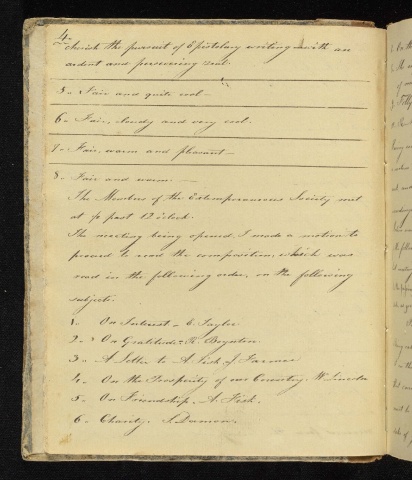 4-
cherish the pursuit of Epistolary writing with an
ardent and persevering zeal.
5- Fair and quite cool-
6- Fair, cloudy and very cool.
7- Fair, warm and pleasant-
8- Fair and warm -
The Members of the Extemporaneous Society met
at ½ past 12 o'clock.
The meeting being opened, I made a motion to
proceed to read the composition, which was
read in the following order, on the following
subjects.
1- On Interest - C. Taylor
2- On Gratitude - R. Boynton
3- A Letter to A. Fisk J. Farmer
4- On the Prosperity of our Country. W.
5- On Friendship. A. Fisk.
6- Charity. S. Damon.